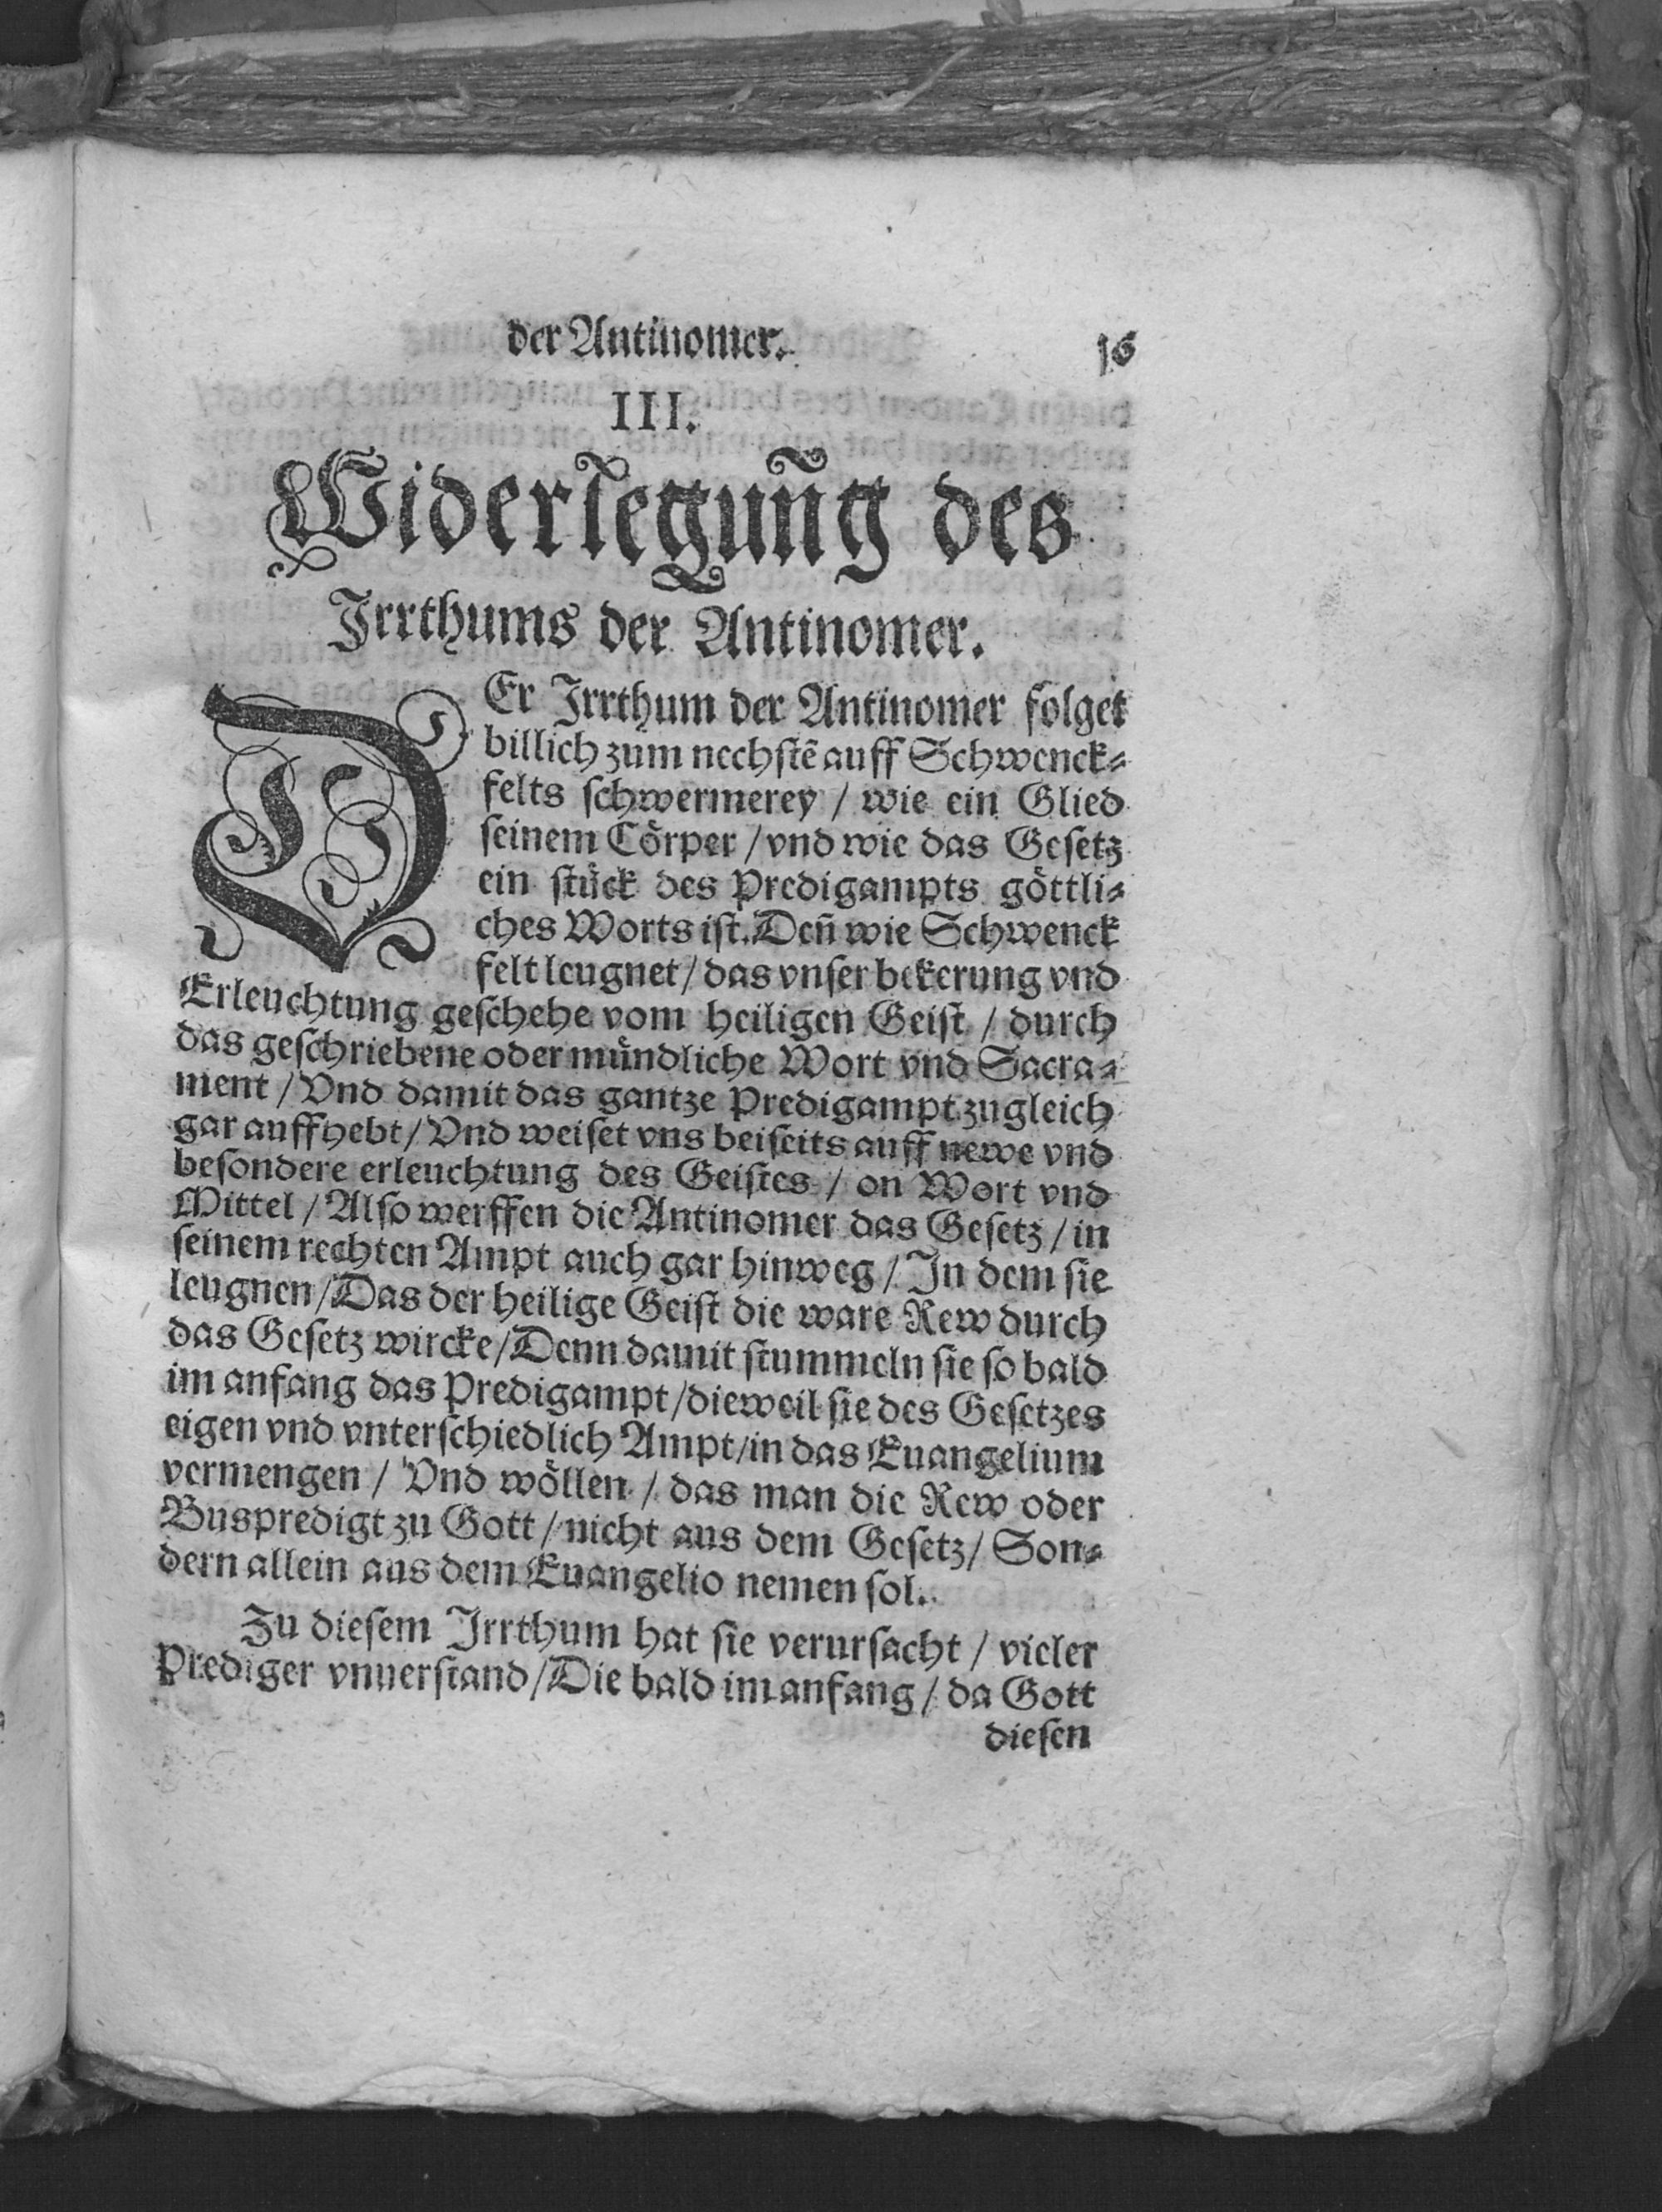 der Antinomer. 16
III.
Widerlegung des
Irrthums der Antinomer.
DEr Irrthum der Antinomer folget
billich zum nechstē auff Schwenck-
felts schwermerey / wie ein Glied
seinem Cörper / vnd wie das Gesetz
ein stück des Predigampts göttli-
ches Worts ist. Deñ wie Schwenck
felt leugnet / das vnser bekerung vnd
Erleuchtung geschehe vom heiligen Geist / durch
das geschriebene oder mündliche Wort vnd Sacra-
ment / Vnd damit das gantze Predigampt zugleich
gar auffhebt / Vnd weiset vns beiseits auff newe vnd
besondere erleuchtung des Geistes / on Wort vnd
Mittel / Also werffen die Antinomer das Gesetz / in
seinem rechten Ampt auch gar hinweg / In dem sie
leugnen / Das der heilige Geist die ware Rew durch
das Gesetz wircke / Denn damit stummeln sie so bald
im anfang das Predigampt / dieweil sie des Gesetzes
eigen vnd vnterschiedlich Ampt / in das Euangelium
vermengen / Vnd wöllen / das man die Rew oder
Buspredigt zu Gott / nicht aus dem Gesetz / Son-
dern allein aus dem Euangelio nemen sol.
Zu diesem Irrthum hat sie verursacht / vieler
Prediger vnuerstand / Die bald im anfang / da Gott
diesen